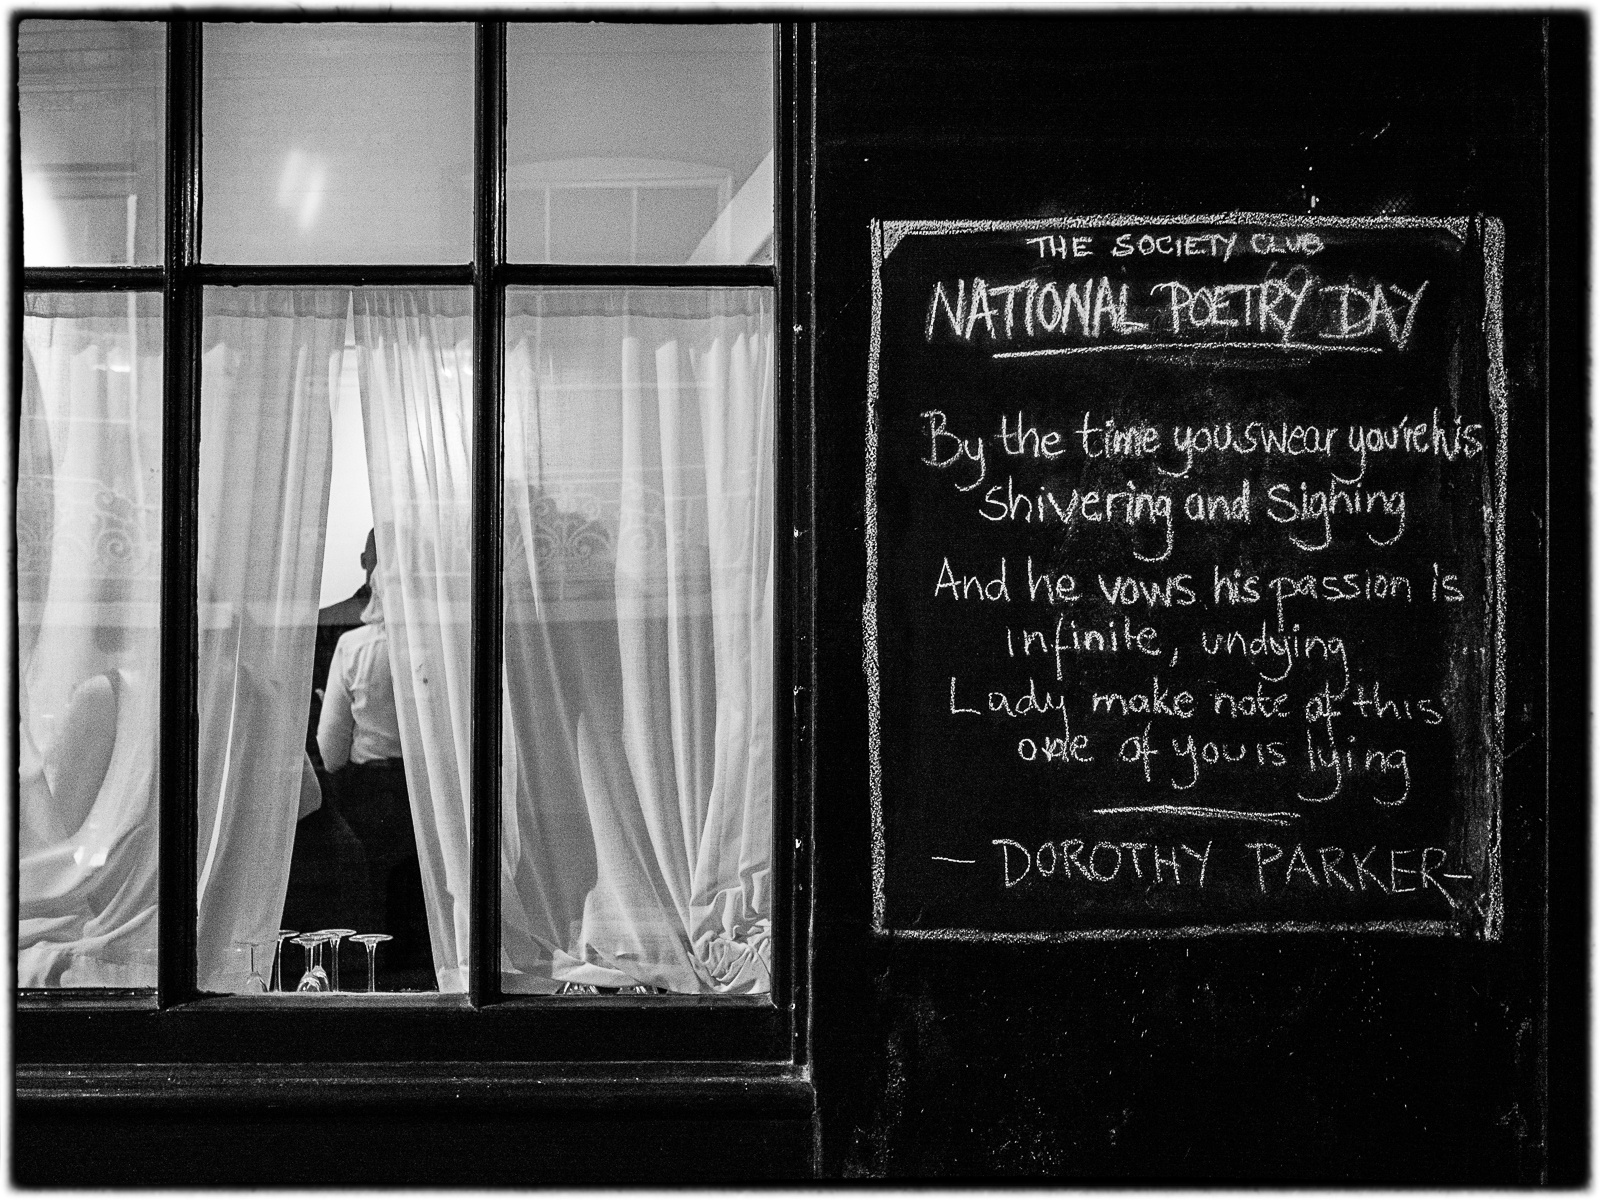 THE SOCIETY CLUB
NATIONAL POETRY DAY
By the time you swear you're his
Shivering and Sighing
And he vows his passion is
infinite, undying
Lady make note of this
one of you is lying
— DOROTHY PARKER —